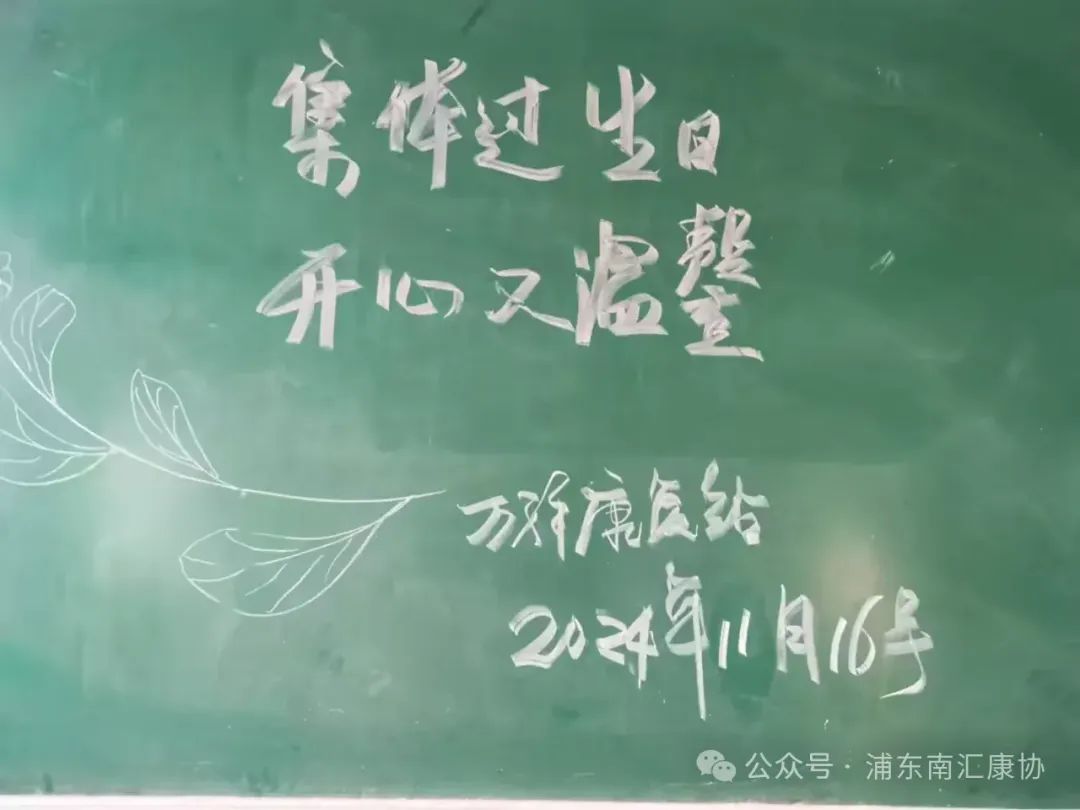 集体过生日
开心又温馨
万祥康复站
2024年11月16号
公众号·浦东南汇康协